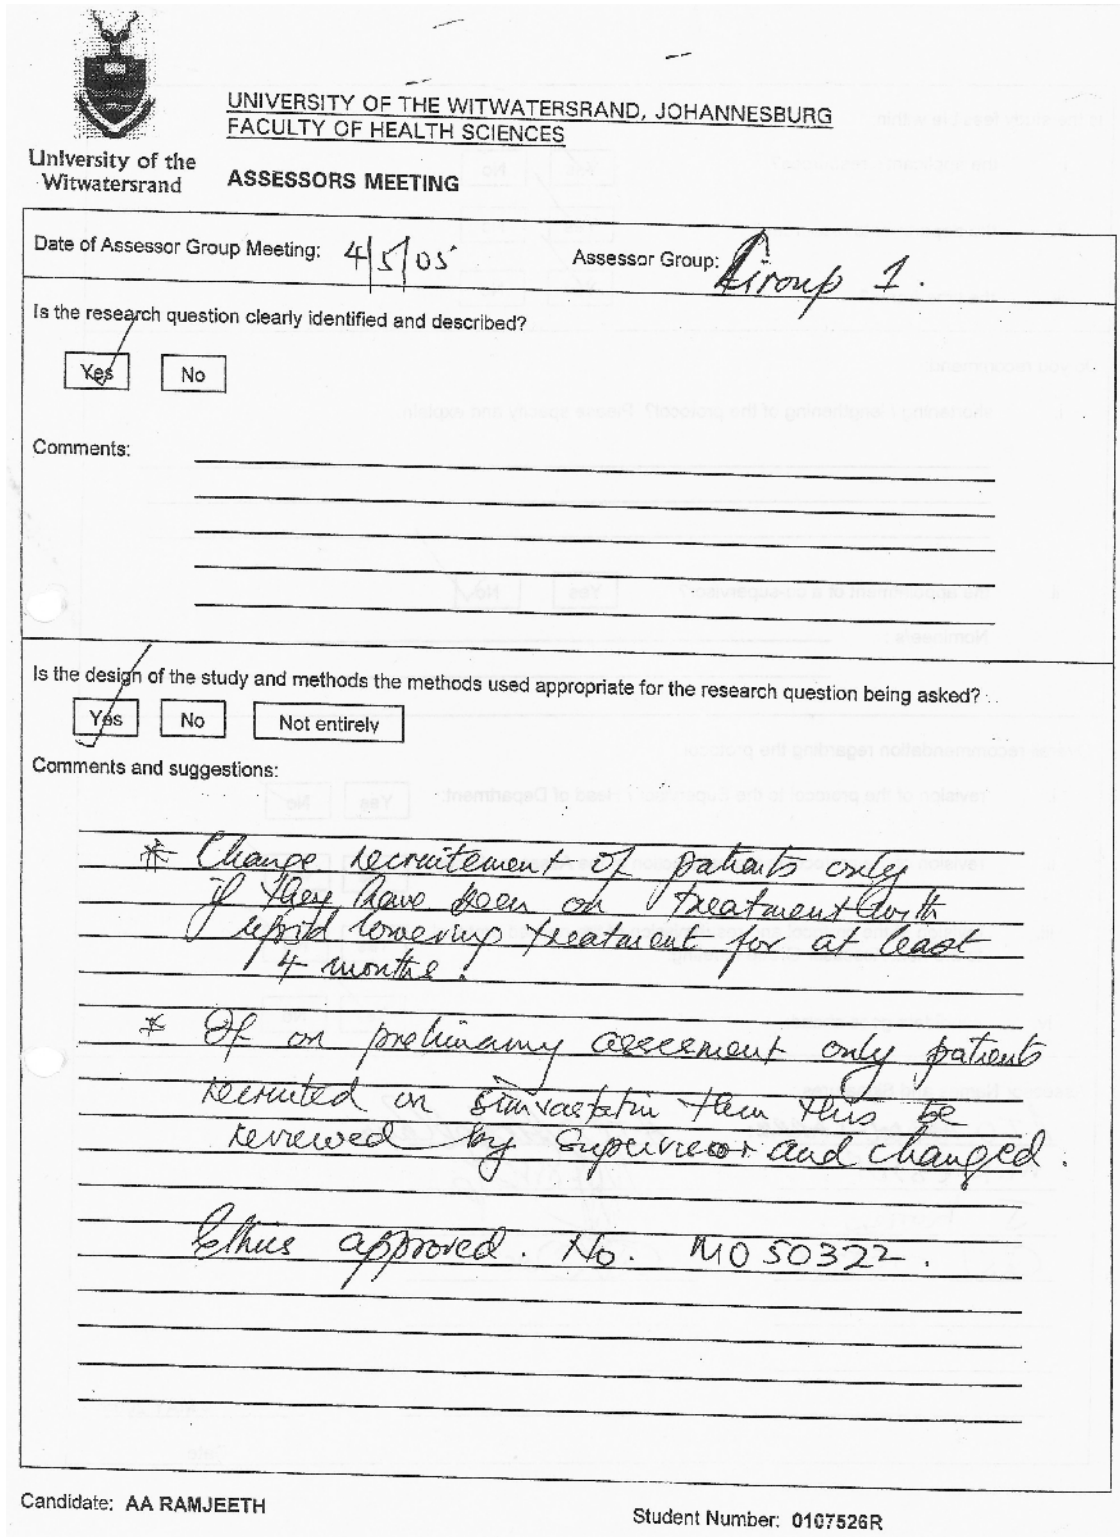 UNIVERSITY OF THE WITWATERSRAND, JOHANNESBURG
FACULTY OF HEALTH SCIENCES
University of the
Witwatersrand
ASSESSORS MEETING
Date of Assessor Group Meeting: 4/5/05 Assessor Group: Group 1.
Is the research question clearly identified and described?
Yes No
Comments:
Is the design of the study and methods the methods used appropriate for the research question being asked?
Yes No Not entirely
Comments and suggestions:
* Change recruitement of patients only
if they have been on treatment with
lipid lowering treatment for at least
4 months.
* If on preliminary assessment only patients
recruited on simvastatin then this be
reviewed by Supervisor and changed.
Ethics approved. No. M050322.
Candidate: AA RAMJEETH
Student Number: 0107526R